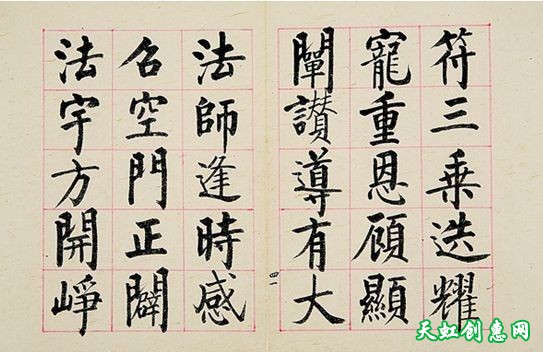 符三乗迭耀
寵重恩顧顯
闡讃導有大
法師逢時感
名空門正闢
法宇方開崢
四一
天虹创惠网